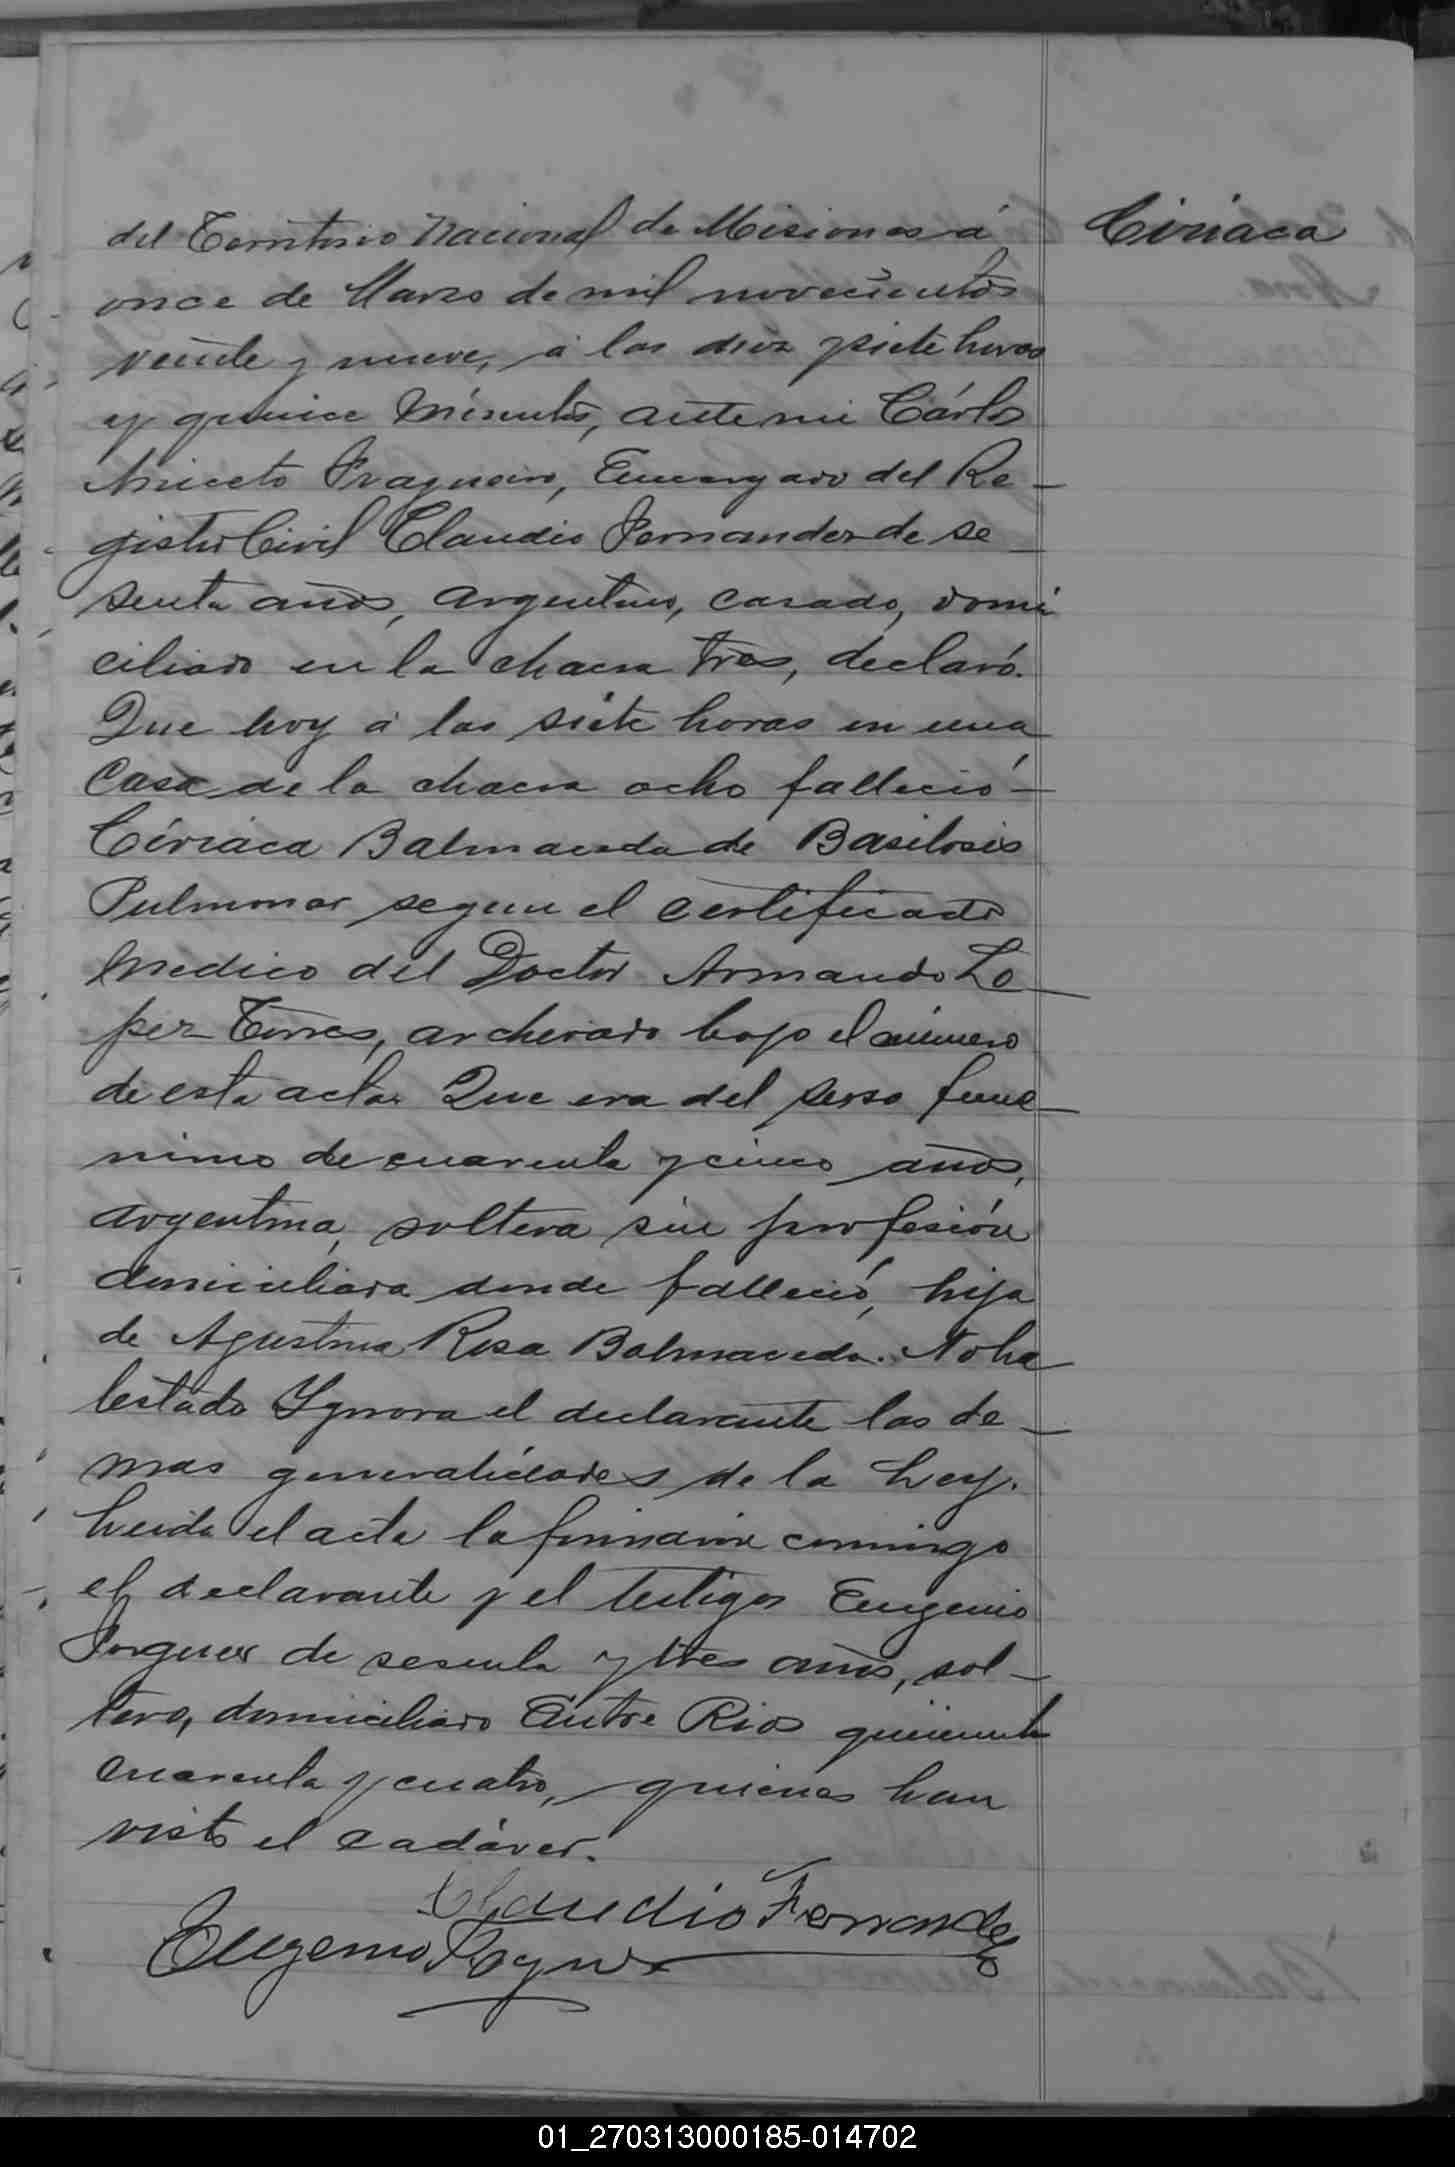 del Territorio Nacional de Misiones á
Ciriaca
once de Marzo de mil novecientos
veinte y nueve, á las diez y siete horas
y quince minutos, ante mi Cárlos
Aniceto Fragueiro, Encargado del Re-
gistro Civil Claudio Fernandez de se-
senta años, argentino, casado, domi
ciliado en la chacra tres, declaró.
Que hoy á las siete horas en una
Casa de la chacra ocho falleció-
Ciriaca Balmaceda de Basilosis
Pulmonar segun el certificado
medico del Doctor Armando Lo-
pez Torres, archivado bajo el número
de esta acta. Que era del sexo feme-
nino de cuarenta y cinco años,
argentina, soltera sin profesión
domiciliada donde falleció, hija
de Agustina Rosa Balmaceda. No ha
testado Ignora el declarante las de-
mas generalidades de la Ley.
Leida el acta la firmaron conmigo
el declarante y el testigos Eugenio
de sesenta y tres años, sol-
tero, domiciliado Entre Rios quinientos
cuarenta y cuatro, quienes han
visto el cadáver.
Claudio Fernandez
Eugenio
01_270313000185-014702